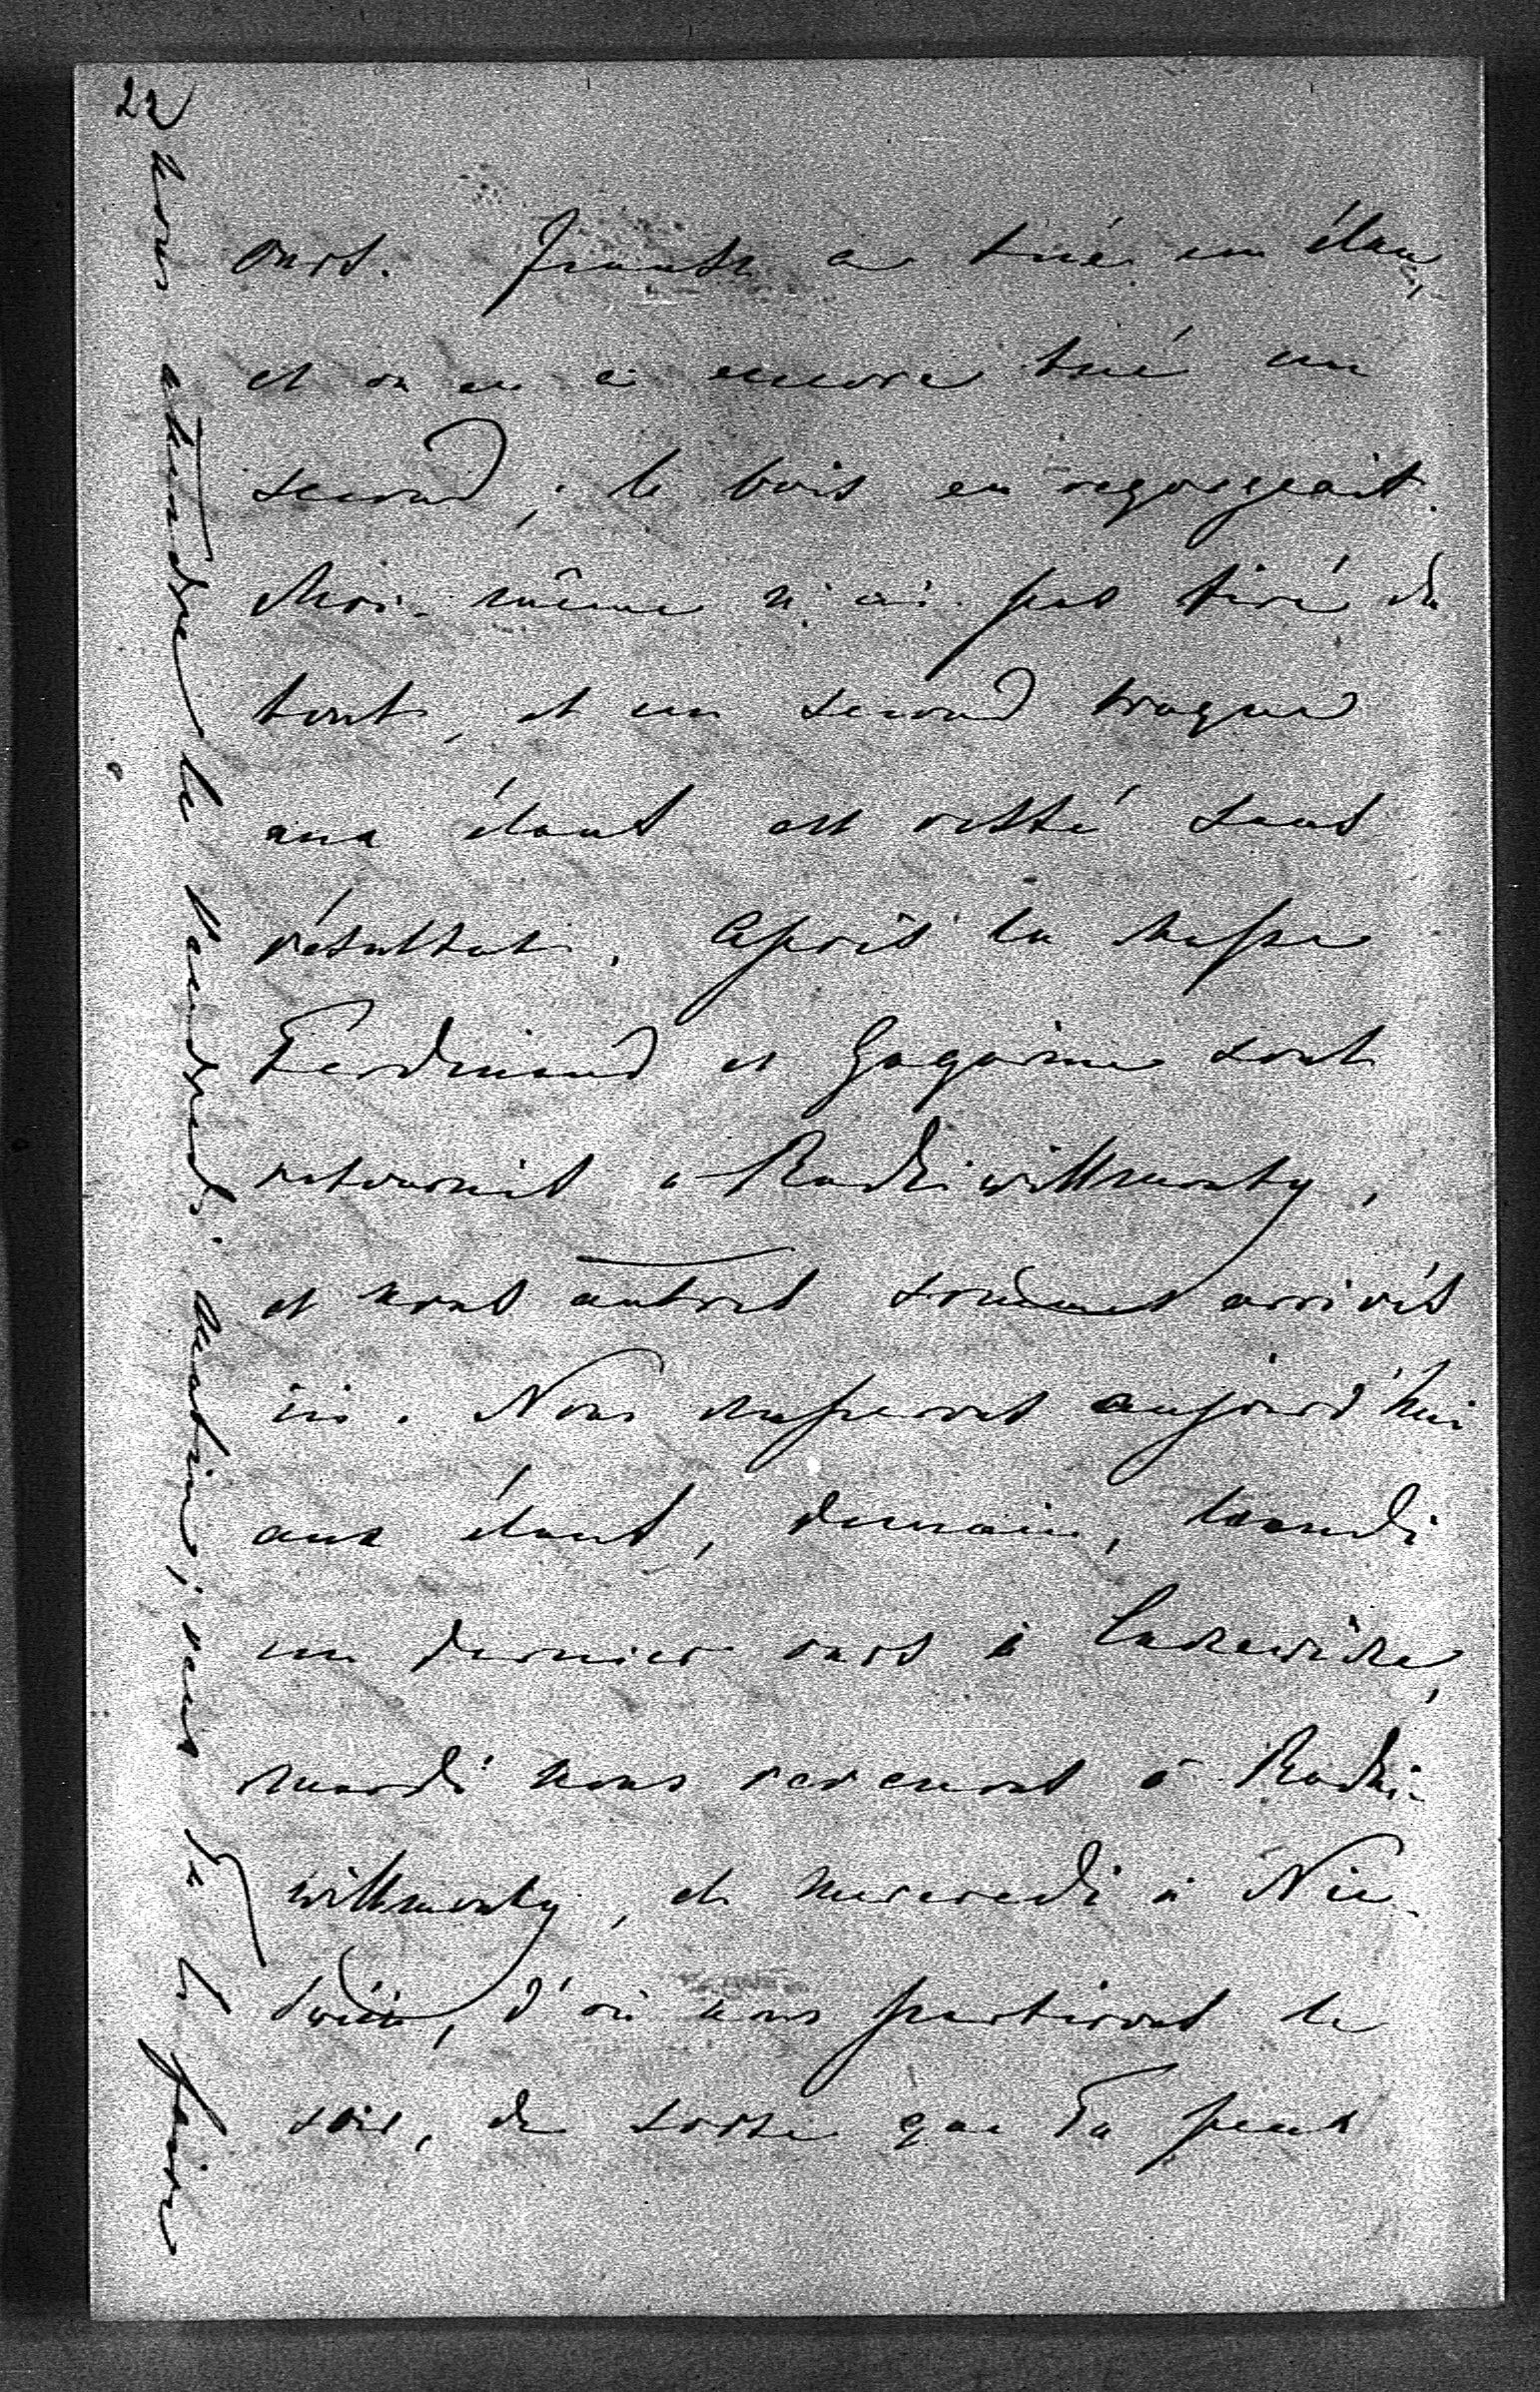 22
ours. Frantz a tué un élan,
et on en a encore tué un
second, le bois en regorgeait.
Moi-même n'ai pas tiré du
tout, et un second traque
aux élans est resté sans
résultat. Après la chasse
Ferdinand et Gagarine sont
retournés à Radziwillmonty,
et nous autres sommes arrivés
ici. Nous chasserons aujourd'hui
aux élans, demain, lundi
un dernier ours à
mardi nous revenons à Radzi-
willmonty, et mercredi à Nie-
swiez, d'où nous partirons le
soir, de sorte que Tu peux
nous attendre le Vendredi matin, veux Tu le faire